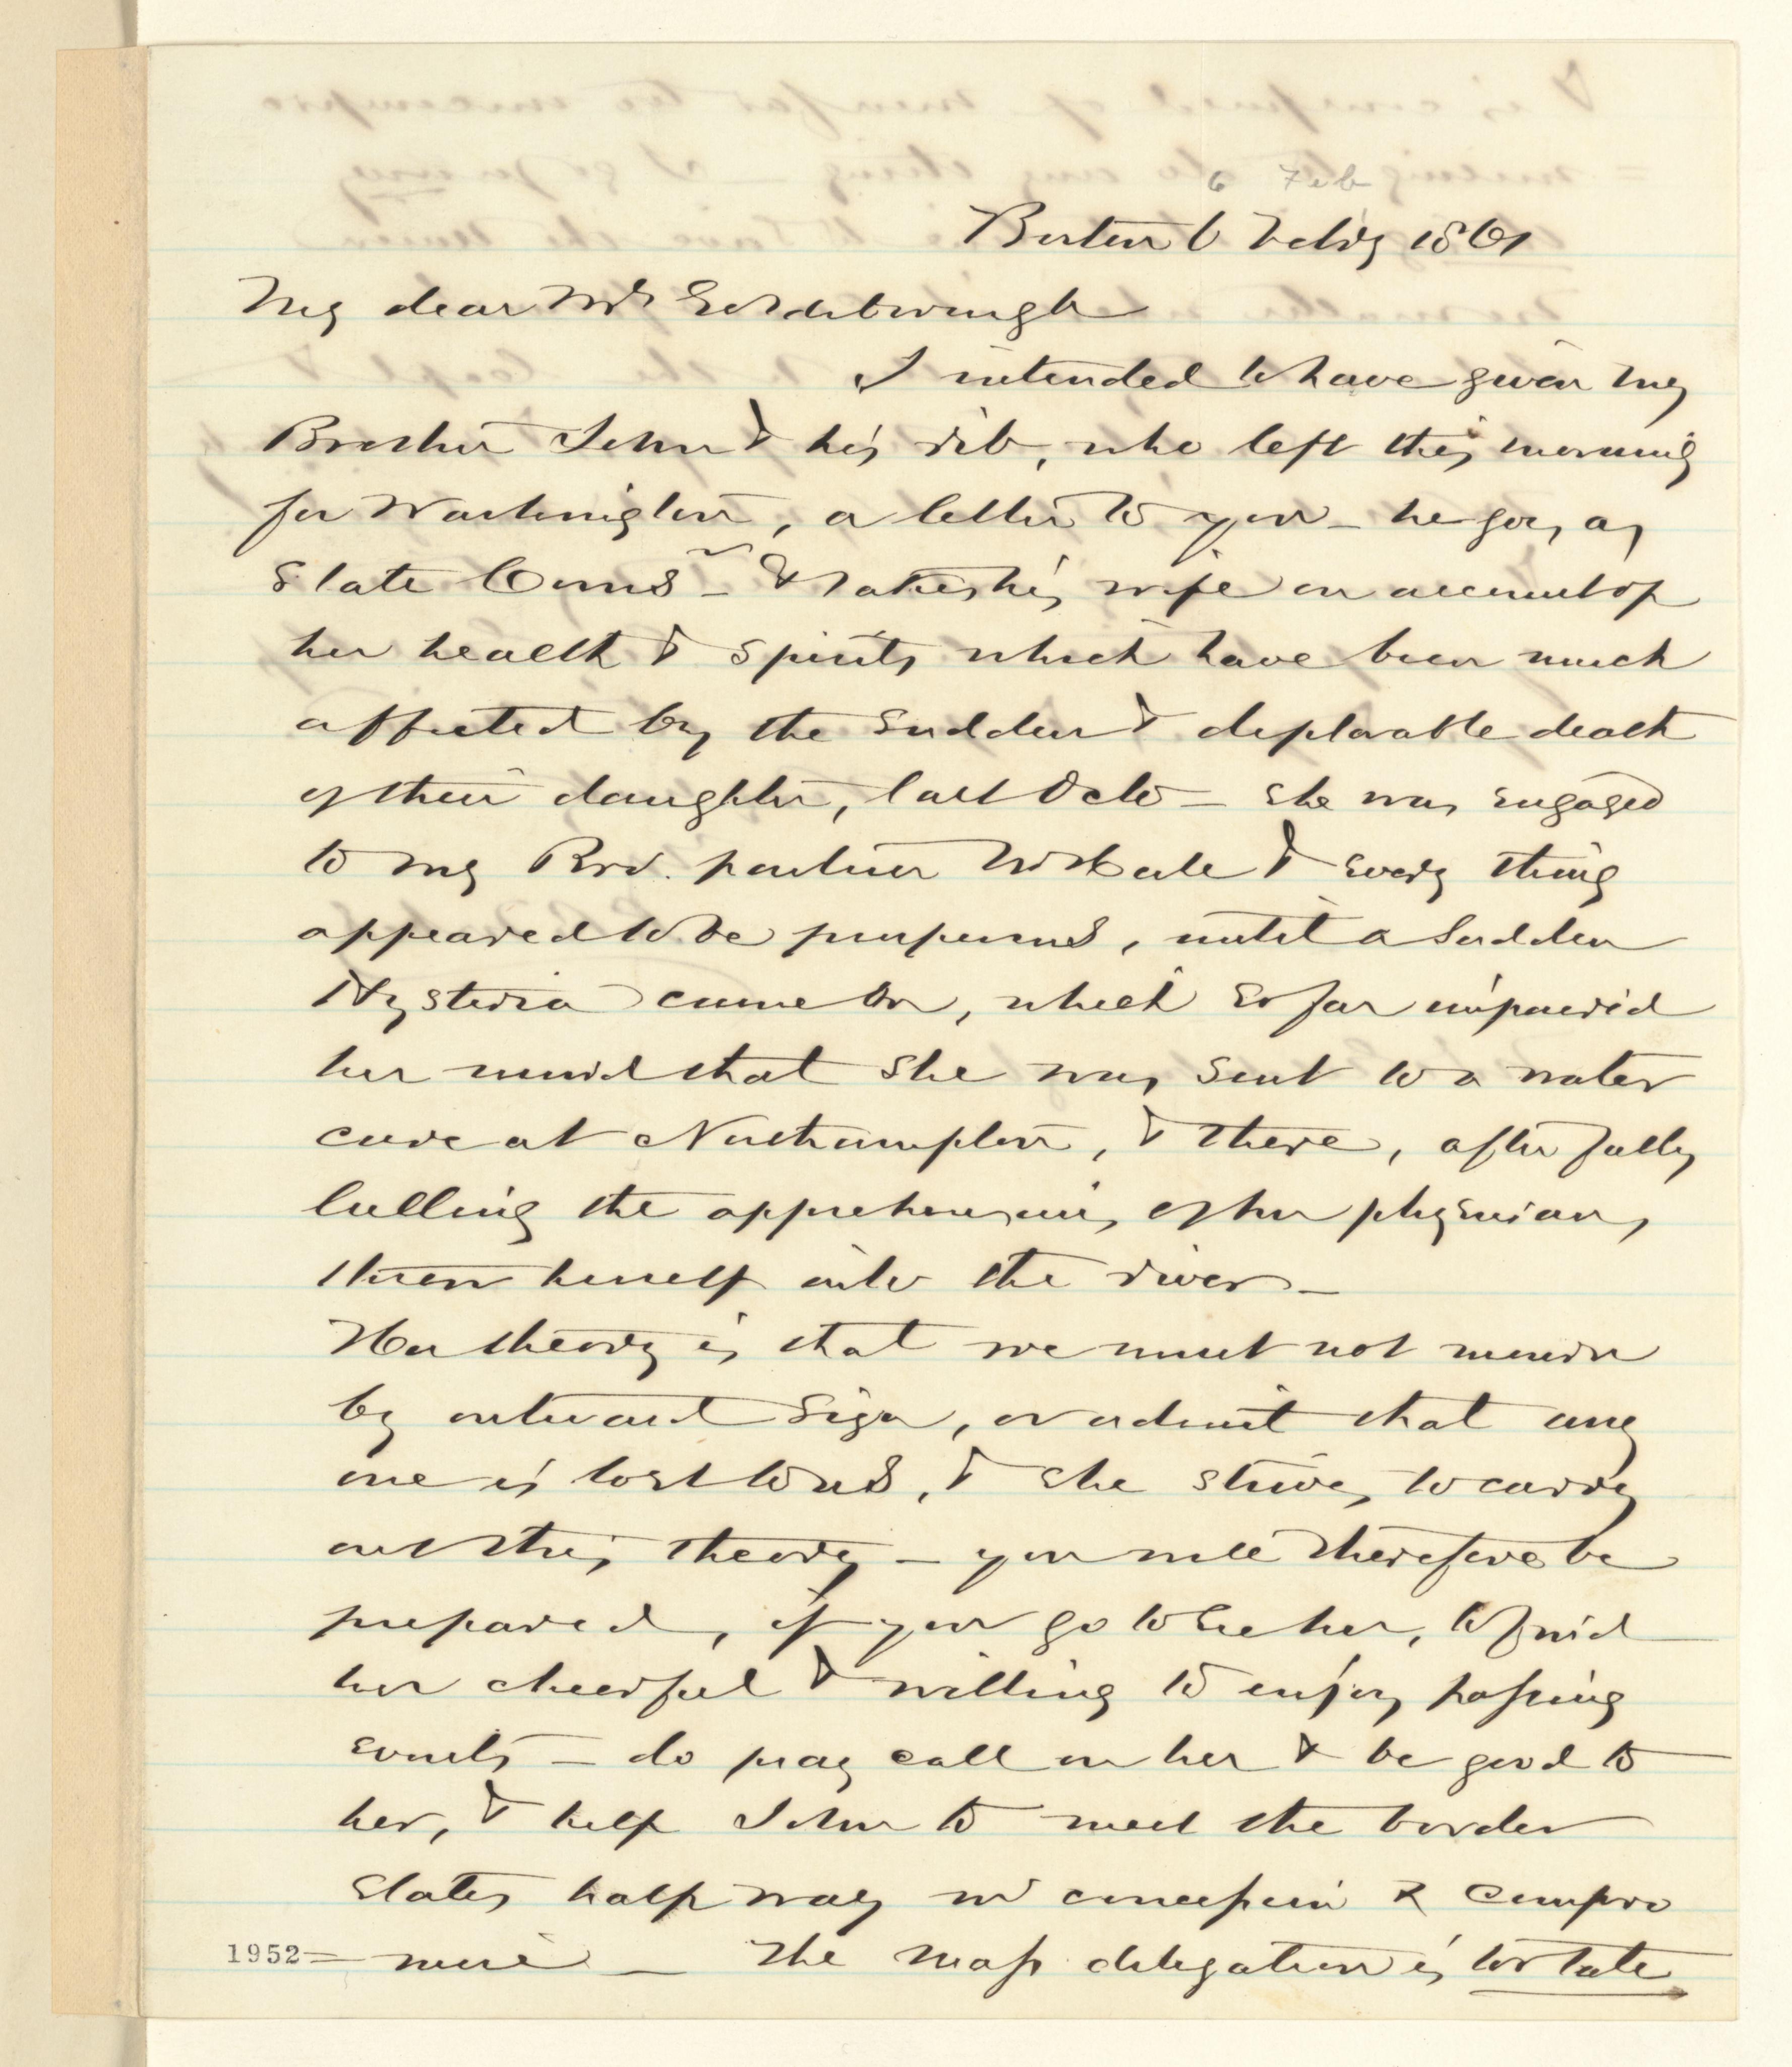 6 Feb
Boston 6 Feb'y 1861
My dear Mrs Goldsborough
I intended to have given my
Brother John & his rib, who left this morning
for Washington, a letter to you _ he goes as
State Comr _ & takes his wife on account of
her health & spirits which have been much
affected by the sudden & deplorable death
of their daughter, last Octo _ She was engaged
to my Rrd. partner & every thing
appeared to be prosperous, until a sudden
Hysteria came on, which so far impaired
her mind that she was sent to a water
cure at Northampton, & there, after fully
lulling the apprehensions of her physicians,
threw herself into the river _
Her theory is that we must not mourn
by outward sign, or admit that any
one is lost to us, & she strives to carry
out this theory _ you will therefore be
prepared, if you go to see her, to find
her cheerful & willing to enjoy passing
events _ do pray call on her & be good to
her, & help John to meet the border
States half way in concession & compro
1952 = mise _ The Mass delegation is too late